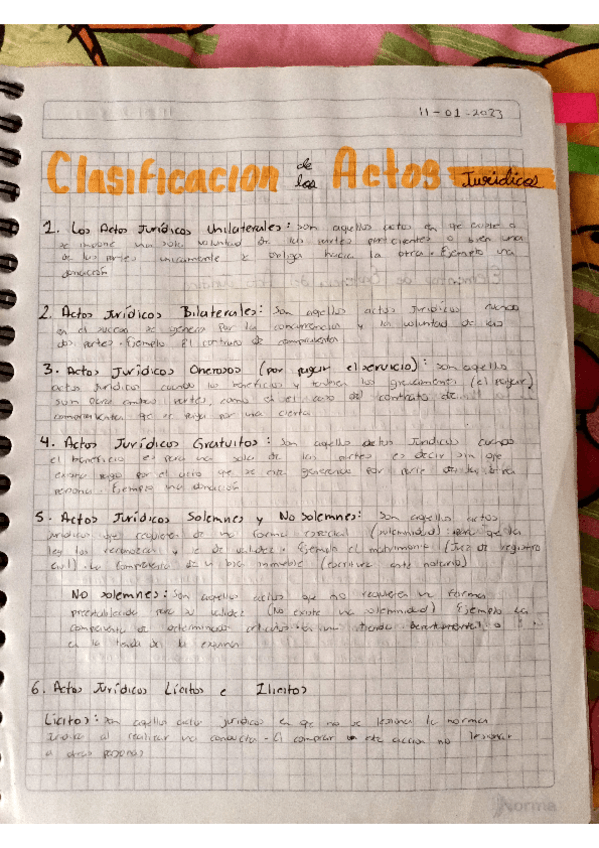 11-01-2023
Clasificacion de los Actos Juridicos
1. Los Actos Jurídicos Unilaterales: son aquellos actos en que
se impone una sola voluntad de las partes o bien una
de las partes unicamente se obliga hacia la otra. Ejemplo una
donación
2. Actos Jurídicos Bilaterales: Son aquellos actos Juridicos cuando
en el suceso se genera por la concurrencia y la voluntad de las
dos partes. Ejemplo El contrato de compraventa
3. Actos Jurídicos Onerosos (por pagar el servicio): son aquellos
actos Juridicos cuando los beneficios y también los gravamenes (el pagar)
son ambas partes, como es el caso del contrato de
compraventa que se paga por una cierta
4. Actos Jurídicos Gratuitos: Son aquellos actos Juridicos cuando
el beneficio es para una sola de las partes es decir sin que
exista pago por el acto que se esta generando por parte de la otra
persona. Ejemplo una donación
5. Actos Jurídicos Solemnes y No Solemnes: Son aquellos actos
juridicos que requieren de una forma especial (solemnidad) para que la
ley los reconozca y le de validez. Ejemplo el matrimonio (Juez de registro
civil). La compraventa de un bien inmueble (escritura ante notario)
No solemnes: Son aquellos actos que no requieren una forma
preestablecida para su validez (No existe una solemnidad) Ejemplo La
compraventa de determinados articulos en una tienda departamental o
en la tienda de la esquina
6. Actos Jurídicos Lícitos e Ilicitos
Lícitos: Son aquellos actos juridicos en que no se lesiona la norma
Juridica al realizar una conducta. El comprar esta accion no lesiona
a otras personas
Norma